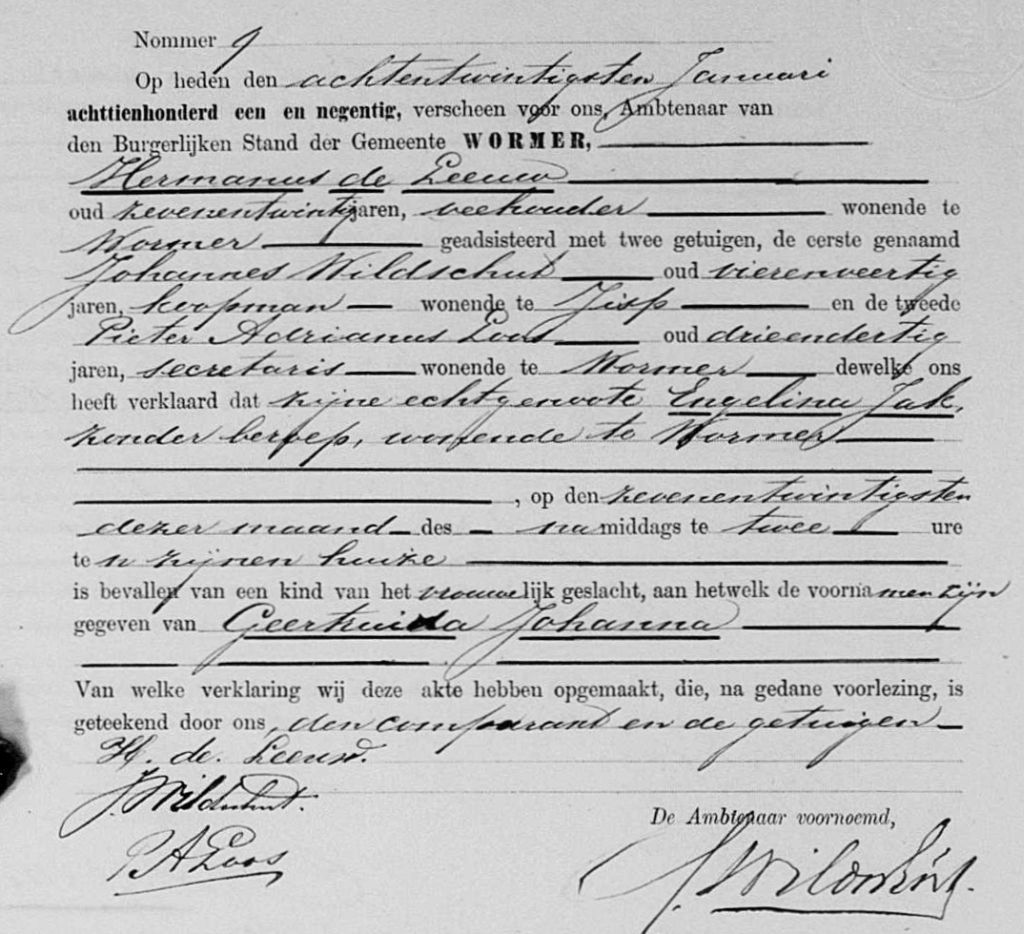 Nommer 9
Op heden den achtentwintigsten Januari
achttienhonderd een en negentig, verscheen voor ons, Ambtenaar van
den Burgerlijken Stand der Gemeente WORMER,
Hermanus de Leeuw
oud zevenentwintig jaren, veehouder wonende te
Wormer geadsisteerd met twee getuigen, de eerste genaamd
Johannes Wildschut oud vierenveertig
jaren, koopman wonende te Jisp en de tweede
Pieter Adrianus Loos oud drieendertig
jaren, secretaris wonende te Wormer dewelke ons
heeft verklaard dat zijne echtgenoote Engelina Jak,
zonder beroep, wonende te Wormer
, op den zevenentwintigsten
dezer maand des namiddags te twee ure
te n zijnen huize
is bevallen van een kind van het vrouwelijk geslacht, aan hetwelk de voornamen zijn
gegeven van Geertruida Johanna
Van welke verklaring wij deze akte hebben opgemaakt, die, na gedane voorlezing, is
geteekend door ons, den comparant en de getuigen
H. de Leeuw.
J. Wildschut.
De Ambtenaar voornoemd,
P A Loos